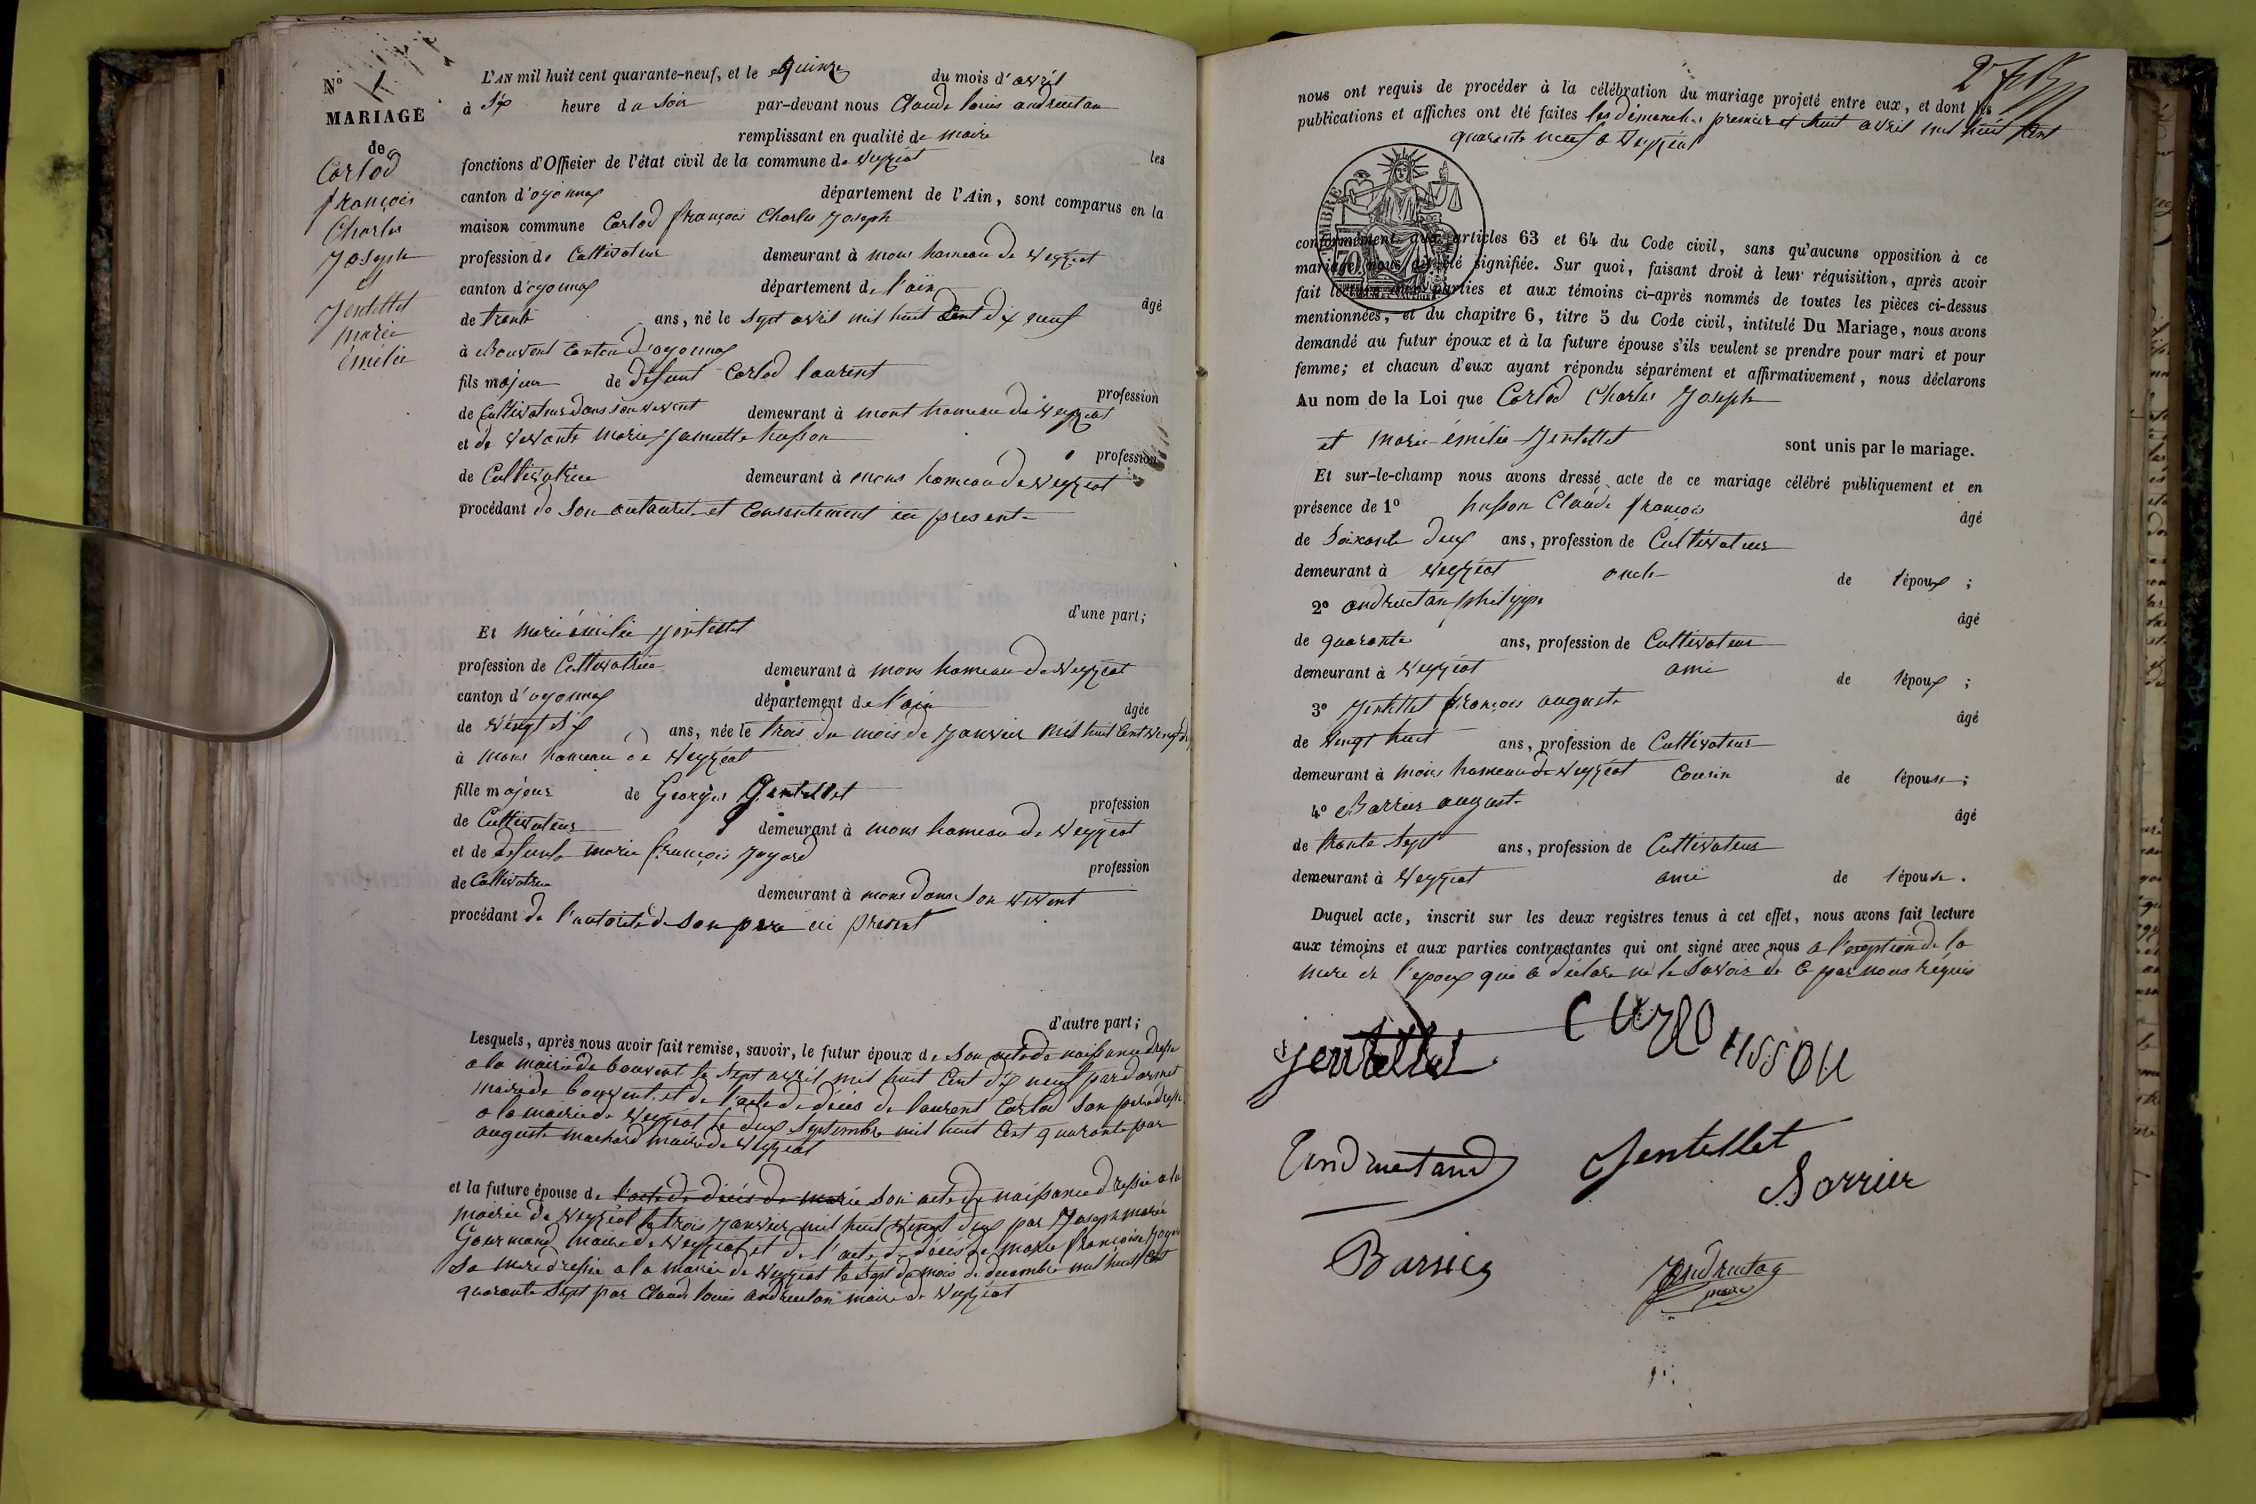 N° 1
MARIAGE
de
Carlod
françois
Charles
Joseph
et
Jentellet
marie
émélie
L'AN mil huit cent quarante-neuf, et le Quinze du mois d'avril
à Six heure du Soir par-devant nous Claude louis andruetan
remplissant en qualité de maire les
fonctions d'Officier de l'état civil de la commune de Veyziat
canton d'oyonnax département de l'Ain, sont comparus en la
maison commune Carlod françois Charles Joseph
profession de Cultivateur demeurant à mons hameau de Veyziat
canton d'oyonnax département de l'ain âgé
de trente ans, né le sept avril mil huit Cent dix neuf
à Bouvent Canton d'oyonnax
fils majeur de défunt Carlod laurent profession
de Cultivateur dans son vivent demeurant à mont hameau de Veyziat
et de vivante marie Jannette husson profession
de Cultivatrice demeurant à mons hameau de Veyziat
procédant de Son autaurité et Consentement ici presente
d'une part;
Et marie émélie Jentellet
profession de Cultivatrice demeurant à mons hameau de Veyziat
canton d'oyonnax département de l'ain âgée
de vingt six ans, née le trois du mois de Janvier mil huit Cent vingt
à mons hameau de Veyziat
fille majeur de Georges Jentellet profession
de Cultivateur demeurant à mons hameau de Veyziat
et de defunte marie françois Joyard profession
de Cultivatrice demeurant à mons dans son vivent
procédant de l'autorité de son pere ici présent
d'autre part;
Lesquels, après nous avoir fait remise, savoir, le futur époux de Son acte de naissance dressé
a la mairie de bouvent le Sept avril mil huit Cent dix neuf par
maire de bouvent et de l'acte de décès de laurent Carlod Son pere dressé
a la mairie de Veyziat le deux Septembre mil huit Cent quarante par
auguste machard maire de Veyziat
et la future épouse de l'acte de décès de marie Son acte de naissance dressée a la
mairie de Veyziat le trois Janvier mil huit vingt deux par Joseph marie
Gourmand maire de Veyziat et de l'acte de décès de marie françoise
Sa mere dressée a la mairie de Veyziat le Sept du mois de decembre mil huit Cent
quarante Sept par Claude louis andruetan maire de Veyziat
nous ont requis de procéder à la célébration du mariage projeté entre eux, et dont les
publications et affiches ont été faites les dimanches premier et huit avril mil huit Cent
quarante neuf a Veyziat
TIMBRE
conformément aux articles 63 et 64 du Code civil, sans qu'aucune opposition à ce
mariage nous ait été signifiée. Sur quoi, faisant droit à leur réquisition, après avoir
fait lecture aux parties et aux témoins ci-après nommés de toutes les pièces ci-dessus
mentionnées, et du chapitre 6, titre 5 du Code civil, intitulé Du Mariage, nous avons
demandé au futur époux et à la future épouse s'ils veulent se prendre pour mari et pour
femme; et chacun d'eux ayant répondu séparément et affirmativement, nous déclarons
Au nom de la Loi que Carlod Charles Joseph
et marie émélie Jentellet sont unis par le mariage.
Et sur-le-champ nous avons dressé acte de ce mariage célébré publiquement et en
présence de 1° husson Claude françois âgé
de Soixante deux ans, profession de Cultivateur
demeurant à Veyziat oncle de l'époux ;
2° andruetan philippe âgé
de quarante ans, profession de Cultivateur
demeurant à Veyziat ami de l'époux ;
3° Jentellet françois auguste âgé
de vingt huit ans, profession de Cultivateur
demeurant à mons hameau de Veyziat Cousin de l'épouse ;
4° Barrier auguste âgé
de trente sept ans, profession de Cultivateur
demeurant à Veyziat ami de l'épouse.
Duquel acte, inscrit sur les deux registres tenus à cet effet, nous avons fait lecture
aux témoins et aux parties contractantes qui ont signé avec nous a l'exeption de la
mere de l'époux qui a déclaré ne le Savoir de ce par nous réquis
jentellet
ussou
Andruetand
Jentellet
Barrier
maire